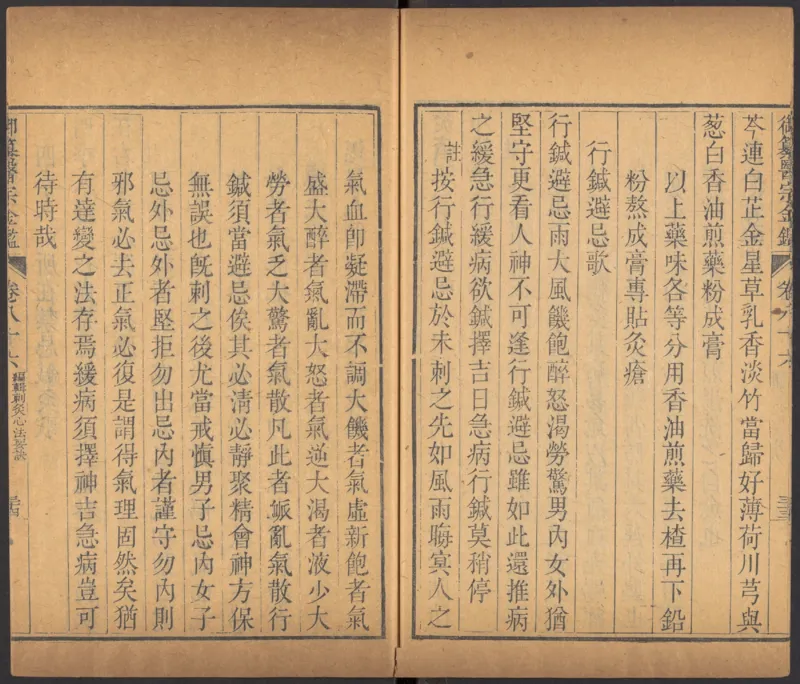 芩連白芷金星草乳香淡竹當歸好薄荷川芎與
葱白香油煎藥粉成膏
以上藥味各等分用香油煎藥去楂再下鉛
粉熬成膏專貼灸瘡
行鍼避忌歌
行鍼避忌雨大風饑飽醉怒渴勞驚男內女外猶
堅守更看人神不可逢行鍼避忌雖如此還推病
之緩急行緩病欲鍼擇吉日急病行鍼莫稍停
註按行鍼避忌於未刺之先如風雨晦冥人之
氣血卽凝滯而不調大饑者氣虛新飽者氣
盛大醉者氣亂大怒者氣逆大渴者液少大
勞者氣乏大驚者氣散凡此者脈亂氣散行
鍼須當避忌俟其必清必靜聚精會神方保
無誤也旣刺之後尤當戒慎男子忌內女子
忌外忌外者堅拒勿出忌內者謹守勿內則
邪氣必去正氣必復是謂得氣理固然矣猶
有達變之法存焉緩病須擇神吉急病豈可
待時哉
御纂醫宗金鑑
卷八十六
編輯刺灸心法要訣